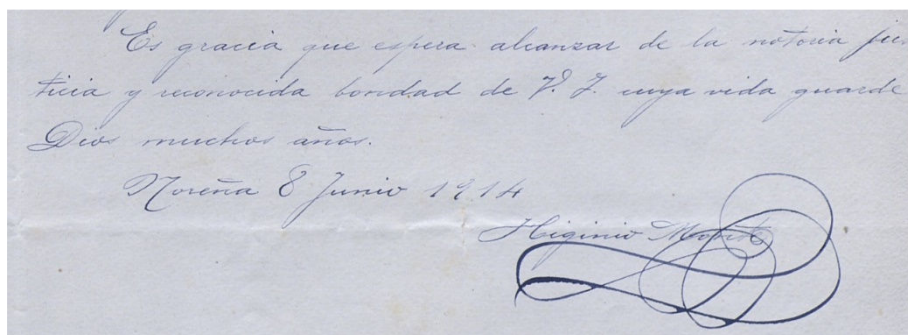 Es gracia que espera alcanzar de la notoria jus
ticia y reconocida bondad de V. I. cuya vida guarde
Dios muchos años.
Noreña 8 Junio 1914
Higinio